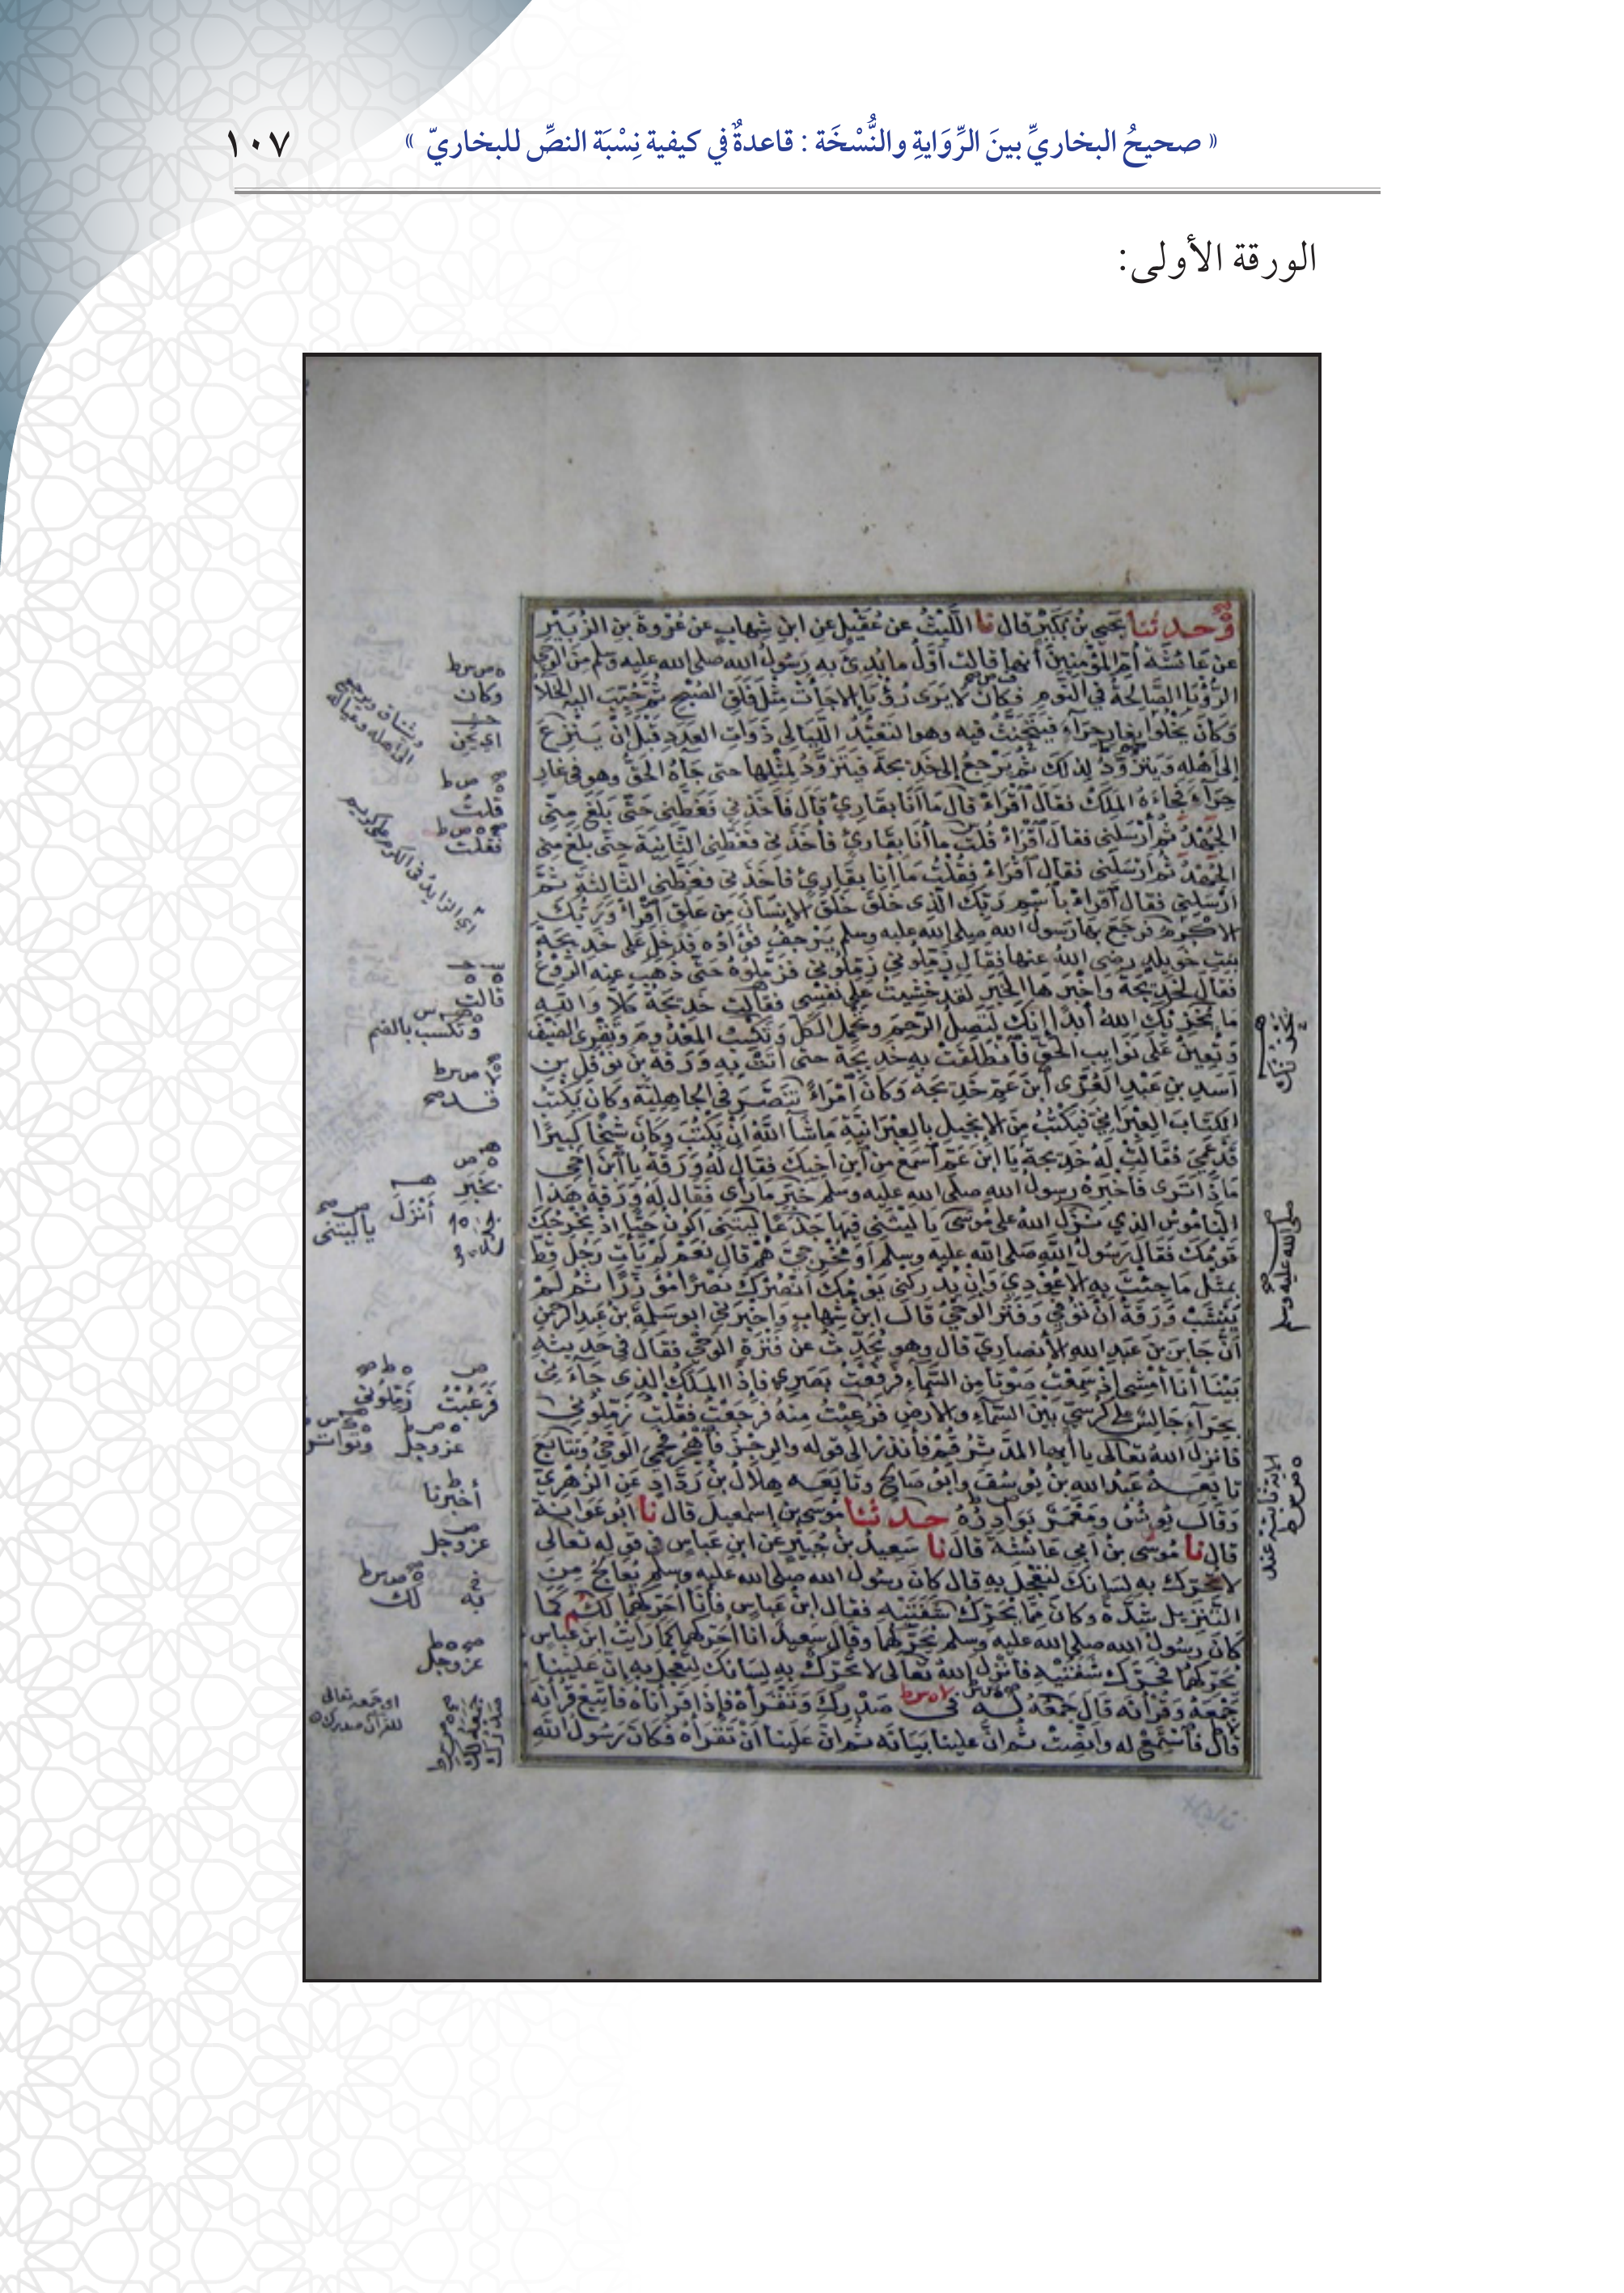 « صحيحُ البخاريِّ بينَ الرِّوَايةِ والنُّسْخَة : قاعدةٌ في كيفية نِسْبَة النصِّ للبخاريّ »
١٠٧
الورقة الأولى:
وحدثنا يحيى بن بكير قال نا الليث عن عقيل عن ابن شهاب عن عروة بن الزبير
عن عائشة أم المؤمنين أنها قالت أول ما بدئ به رسول الله صلى الله عليه وسلم من الوحي
الرؤيا الصالحة في النوم فكان لا يرى رؤيا إلا جاءت مثل فلق الصبح ثم حبب إليه الخلاء
وكان يخلوا بغار حراء فيتحنث فيه وهو التعبد الليالي ذوات العدد قبل أن ينزع
إلى أهله ويتزود لذلك ثم يرجع إلى خديجة فيتزود لمثلها حتى جاءه الحق وهو في غار
حراء فجاءه الملك فقال اقرأ قال ما أنا بقارئ قال فأخذني فغطني حتى بلغ مني
الجهد ثم أرسلني فقال اقرأ قلت ما أنا بقارئ فأخذني فغطني الثانية حتى بلغ مني
الجهد ثم أرسلني فقال اقرأ فقلت ما أنا بقارئ فأخذني فغطني الثالثة ثم
أرسلني فقال اقرأ باسم ربك الذي خلق خلق الإنسان من علق اقرأ وربك
الأكرم فرجع بها رسول الله صلى الله عليه وسلم يرجف فؤاده فدخل على خديجة
بنت خويلد رضي الله عنها فقال زملوني زملوني فزملوه حتى ذهب عنه الروع
فقال لخديجة وأخبرها الخبر لقد خشيت على نفسي فقالت خديجة كلا والله
ما يخزيك الله أبدا إنك لتصل الرحم وتحمل الكل وتكسب المعدوم وتقري الضيف
وتعين على نوايب الحق فانطلقت به خديجة حتى أتت به ورقة بن نوفل بن
أسد بن عبد العزى ابن عم خديجة وكان امرأ تنصر في الجاهلية وكان يكتب
الكتاب العبراني فيكتب من الإنجيل بالعبرانية ما شاء الله أن يكتب وكان شيخا كبيرا
قد عمي فقالت له خديجة يا ابن عم اسمع من ابن أخيك فقال له ورقة يا ابن أخي
ماذا ترى فأخبره رسول الله صلى الله عليه وسلم خبر ما رأى فقال له ورقة هذا
الناموس الذي نزل الله على موسى يا ليتني فيها جذعا ليتني أكون حيا إذ يخرجك
قومك فقال رسول الله صلى الله عليه وسلم أو مخرجي هم قال نعم لم يأت رجل قط
بمثل ما جئت به إلا عودي وإن يدركني يومك أنصرك نصرا مؤزرا ثم لم
ينشب ورقة أن توفي وفتر الوحي قال ابن شهاب وأخبرني أبو سلمة بن عبد الرحمن
أن جابر بن عبد الله الأنصاري قال وهو يحدث عن فترة الوحي فقال في حديثه
بينا أنا أمشي إذ سمعت صوتا من السماء فرفعت بصري فإذا الملك الذي جاءني
بحراء جالس على كرسي بين السماء والأرض فرعبت منه فرجعت فقلت زملوني
فأنزل الله تعالى يا أيها المدثر قم فأنذر إلى قوله والرجز فاهجر فحمي الوحي وتتابع
تابعه عبد الله بن يوسف وأبو صالح وتابعه هلال بن رداد عن الزهري
وقال يونس ومعمر بوادره حدثنا موسى بن إسمعيل قال نا أبو عوانة
قال نا موسى بن أبي عائشة قال نا سعيد بن جبير عن ابن عباس في قوله تعالى
لا تحرك به لسانك لتعجل به قال كان رسول الله صلى الله عليه وسلم يعالج من
التنزيل شدة وكان مما يحرك شفتيه فقال ابن عباس فأنا أحركهما لكم كما
كان رسول الله صلى الله عليه وسلم يحركهما وقال سعيد أنا أحركهما كما رأيت ابن عباس
يحركهما فحرك شفتيه فأنزل الله تعالى لا تحرك به لسانك لتعجل به إن علينا
جمعه وقرآنه قال جمعه له في صدرك وتقرأه فإذا قرأناه فاتبع قرآنه
قال فاستمع له وأنصت ثم إن علينا بيانه ثم إن علينا أن تقرأه فكان رسول الله
وكان
قلت
فقلت
قالت
وتكسب بالضم
بخبر
أنزل
يا ليتني
فرعبت
زملوني
عز وجل
أخبرنا
عز وجل
لك
عز وجل
صلى الله عليه وسلم